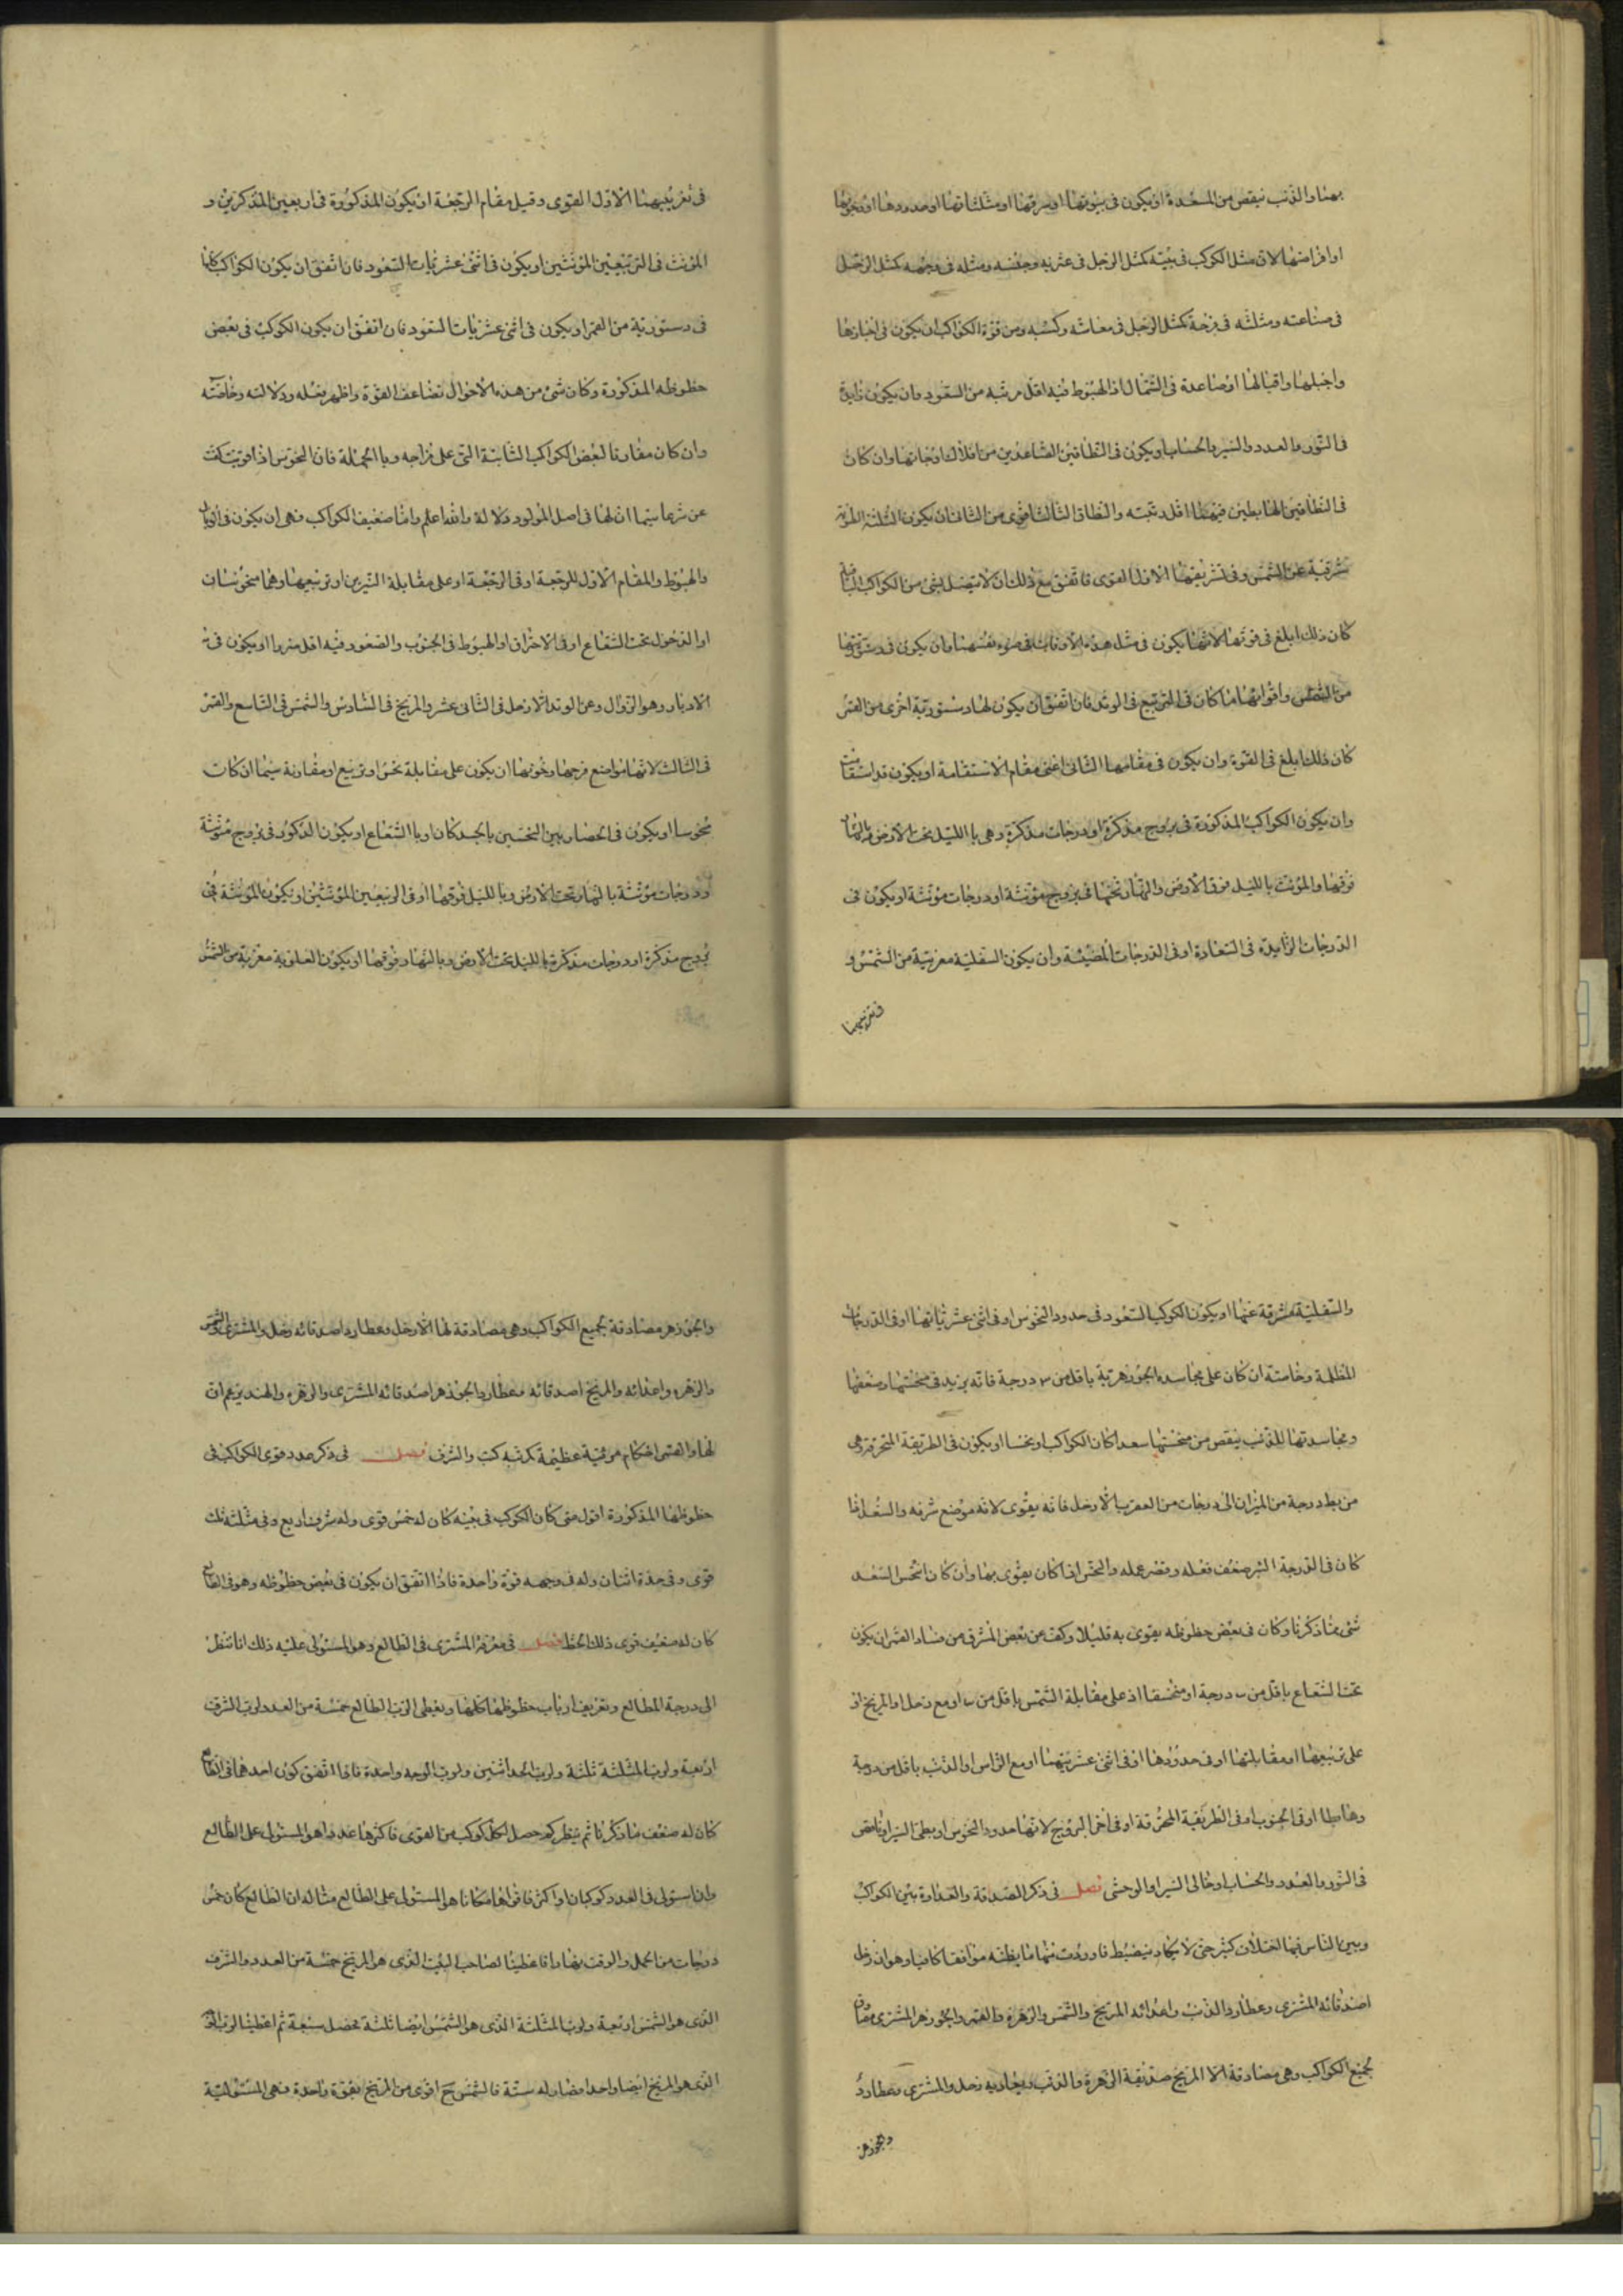 بهما والذنب ينقص من المسعدة او يكون في بيوتها او شرفها او مثلثاتها او حدودها او وجوهها
او افراحها لان مثل الكوكب في بيته كمثل الرجل في عزيه وحصنه ومثله في وجهه كمثل الرجل
في صناعته ومثلثه في فرحه كمثل الرجل في معاشه وكسبه ومن قوة الكواكب ان يكون في احيازها
واقبالها او صاعدة في الشمال اذ الهبوط فيه اقل مرتبة من السعود وان يكون زايدة
في النور والعدد والسير والحساب او يكون في النطاقين الصاعدين من افلاك اوجاتها وان كان
في النطاقين الهابطين فيهما اقل رتبته والنطاق الثالث اقوى من الثاني ان يكون الثلثة العلوية
مشرقية عن الشمس وفي تشريقها الاول القوى فاتفق مع ذلك ان لا يتصل بشئ من الكواكب البتة
كان ذلك ابلغ في قوتها لانها يكون في مثل هذه الاوقات في ضوء نفسها وان يكون في دستوريتها
من الشمس واقوائها ما كان في التربيع في الوتد فان اتفق ان يكون لها دستورية اخرى من القمر
كان ذلك ابلغ في القوة وان يكون في مقامها الثاني اعنى مقام الاستقامة او يكون قد استقامت
وان يكون الكواكب المذكورة في بروج مذكرة او درجات مذكرة وهي باالليل تحت الارض وبالنهار
فوقها والمؤنث بالليل فوق الارض والنهار تحتها في بروج مؤنثة او درجات مؤنثة او يكون في
الدرجات الزايدة في السعادة او في الدرجات المضيئة وان يكون السفلية مغربية من الشمس و
في تغريبهما
في تغريبهما الاول القوى وقبل مقام الرجعة او يكون المذكورة في اربعين المذكرين و
المؤنث في التربيعين المؤنثين او يكون في اثنى عشريات السعود فان اتفق ان يكون الكواكب كلها
في دستورية من القمر او يكون في اثنى عشريات السعود فان اتفق ان يكون الكوكب في بعض
حظوظه المذكورة وكان شئ من هذه الاحوال تضاعف القوة واظهر فعله ودلالته وخاصته
وان كان مقارنا لبعض الكواكب الثابتة التي على مزاجه وباالجملة فان النحوس اذا قويت كفت
عن شرها سيما ان لها في اصل المولود دلالة والله اعلم واما ضعيف الكواكب فهي ان يكون في الوبال
والهبوط والمقام الاول للرجعة او في الرجعة او على مقابلة النيرين او تربيعهما وهما منحوسان
او الدخول تحت الشعاع او في الاحتراق او الهبوط في الجنوب والصعود فيه اقل ضررا او يكون في
الادبار وهو الزوال وعن الوتد الا زحل في الثاني عشر والمريخ في السادس والشمس في التاسع والقمر
في الثالث لانها مواضع فرحها ونحوسها ان يكون على مقابلة نحس او تربيع او مقارنة سيما ان كانت
منحوسا او يكون في انحصار بين النحسين بالجسد كان او باالشعاع او يكون الذكور في بروج مؤنثة
ودرجات مؤنثة بالنهار تحت الارض وبا لليل فوقها او في الربعين المؤنثين او يكون المؤنثة في
بروج مذكرة او درجات مذكرة بالليل تحت الارض وبالنهار فوقها او يكون العلوية مغربية من الشمس
والسفلية مشرقة عنها او يكون الكوكب السعود في حدود النحوس او في اثنى عشرياتها او في الدرجات
المظلمة وخاصته ان كان على مجاسدة الجوزهرية باقل من درجة فانه يزيد في منحستها وضعفها
ومجاسدتها للذنب ينقص من منحستها سعدا كان الكواكب او نحسا او يكون في الطريقة المحترقة وهي
من يط درجة من الميزان الى درجات من العقرب الا زحل فانه يقوى لانه موضع شرفه والسعد اذا
كان في الدرجة البئر ضعف فعله وقصر عمله والنحس اذا كان يقوى بها وان كان انحس السعد
شئ مما ذكرنا وكان في بعض حظوظه يقوى به قليلا وكف عن بعض المشرق من فساد القمر ان يكون
تحت الشعاع باقل من درجة او منخسفا اذ على مقابلة الشمس باقل من او مع زحل او المريخ او
على تربيعها او مقابلتها او في حدودها او في اثنى عشريتهما او مع الراس او الذنب باقل من درجة
وهابطا او في الجنوب او في الطريقة المحترقة او في اخر البروج لانها حدود النحوس او بطئ السير او ناقص
في النور والعدد والحساب او خالى السير او الوحشى فصل في ذكر الصداقة والعداوة بين الكواكب
وبين الناس فيها اختلاف كثير حتى لا يكاد ينضبط فاوردت منها ما يظنه موافقا كافيا وهو ان زحل
اصدقائه المشترى وعطارد والذنب واعدائه المريخ والشمس والزهرة والقمر والجوزهر المشترى مصادق
لجميع الكواكب وهي مصادقة الا المريخ صديقه الزهرة والذنب ويعاديه زحل والمشترى وعطارد
والجوزهر
والجوزهر مصادقة لجميع الكواكب وهي مصادقة لها الا زحل وعطارد اصدقائه زحل والمشترى والشمس
والزهرة واعدائه والمريخ اصدقائه عطارد والجوزهر اصدقائه المشترى والزهرة والهند يزعم ان
لها والقمر احكام مرئية عظيمة كرتبة كت والشرف فصل في ذكر عدد قوى الكواكب في
حظوظها المذكورة اقول متى كان الكوكب في بيته كان له خمس قوى وله شرف اربع وفي مثلثه ثلث
قوى وفي حده اثنان وله في وجهه قوة واحدة فاذا اتفق ان يكون في بعض حظوظه وهو في الطالع
كان له ضعيف قوى ذلك الحظ فصل في معرفة المشترى في الطالع وهو المستولى عليه ذلك انا ننظر
الى درجة المطالع وتعريف ارباب حظوظها كلها ويعطى الرب الطالع خمسة من العدد لرب الشرف
اربعة ولرب المثلثة ثلثة ولرب الحد اثنين ولرب الوجه واحدة فاذا اتفق كون احدهما في الطالع
كان له ضعف ما ذكرنا ثم ينظر كم حصل لكل كوكب من القوى فاكثرها عددا هو المستولى على الطالع
وان استولى في العدد كوكبان او اكثر فاقواها مكانا هو المستولى على الطالع مثاله ان الطالع كان خمس
درجات من الحمل والوقت نهارا فاعطينا لصاحب البيت الذى هو المريخ خمسة من العدد والشرف
الذى هو الشمس اربعة ولرب المثلثة الذى هو الشمس ايضا ثلثة يحصل سبعة ثم اعطينا لرب الحد
الذى هو المريخ ايضا واحدا فصار له ستة فالشمس ح اقوى من المريخ بقوة واحدة فهى المستولية